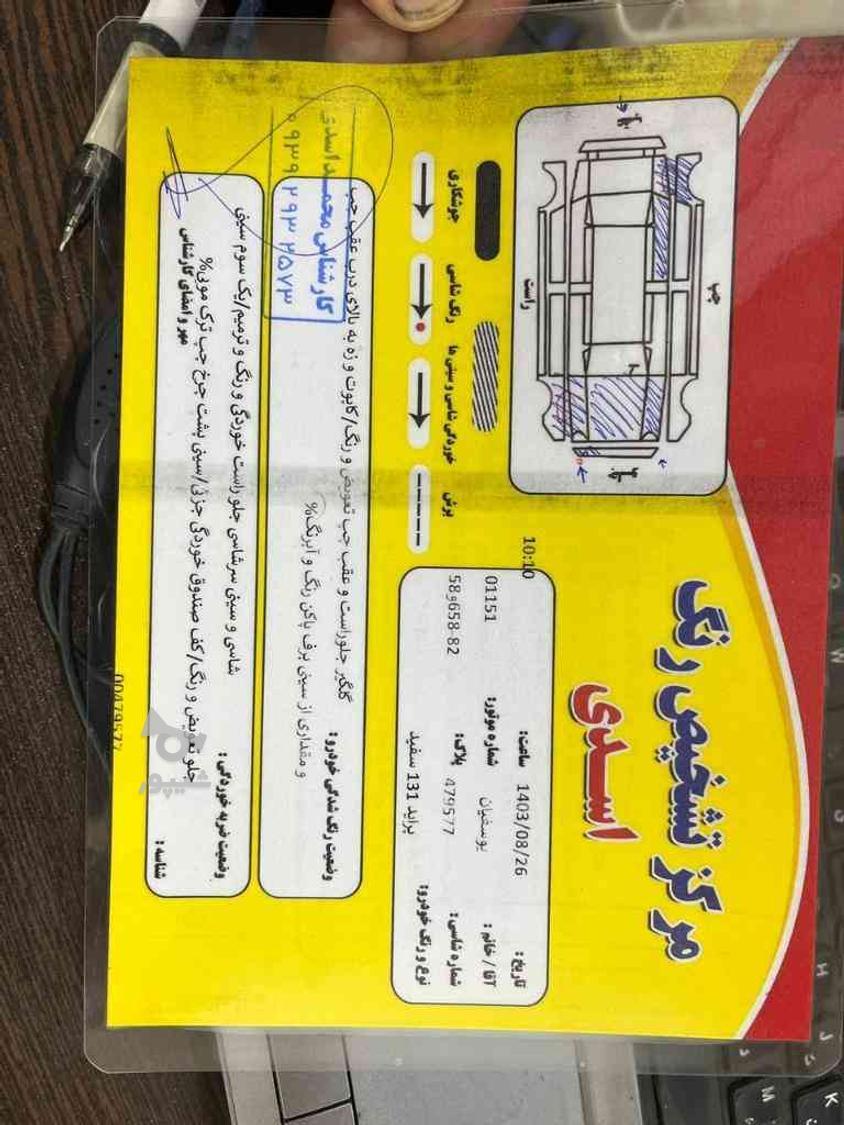 مرکز تشخیص رنگ
اسدی
تاریخ : 1403/08/26 ساعت: 10:10
آقا / خانم : یوسفیان شماره موتور: 01151
شماره شاسی: 479577 پلاک: 82-658و58
نوع و رنگ خودرو: پراید 131 سفید
چپ
راست
جلو
جوشکاری
رنگ شاسی
خوردگی شاسی و سینی ها
برش
وضعیت رنگ شدگی خودرو: گلگیر جلوراست و عقب چپ تعویض و رنگ/کاپوت و زه به بالای درب عقب چپ
و مقداری از سینی برف پاکن رنگ و آبرنگ%
کارشناس محمد اسدی
۰۹۳۹ ۲۹۳ ۲۵۷۳
وضعیت ضربه خوردگی : شاسی و سینی سرشاسی جلو راست خوردگی و رنگ و ترمیم/یک سوم سینی
جلو تعویض و رنگ/کف صندوق خوردگی جزئی/سینی پشت چرخ چپ ترک مویی%
مهر و امضای کارشناس
شناسه :
00479577
شیپور